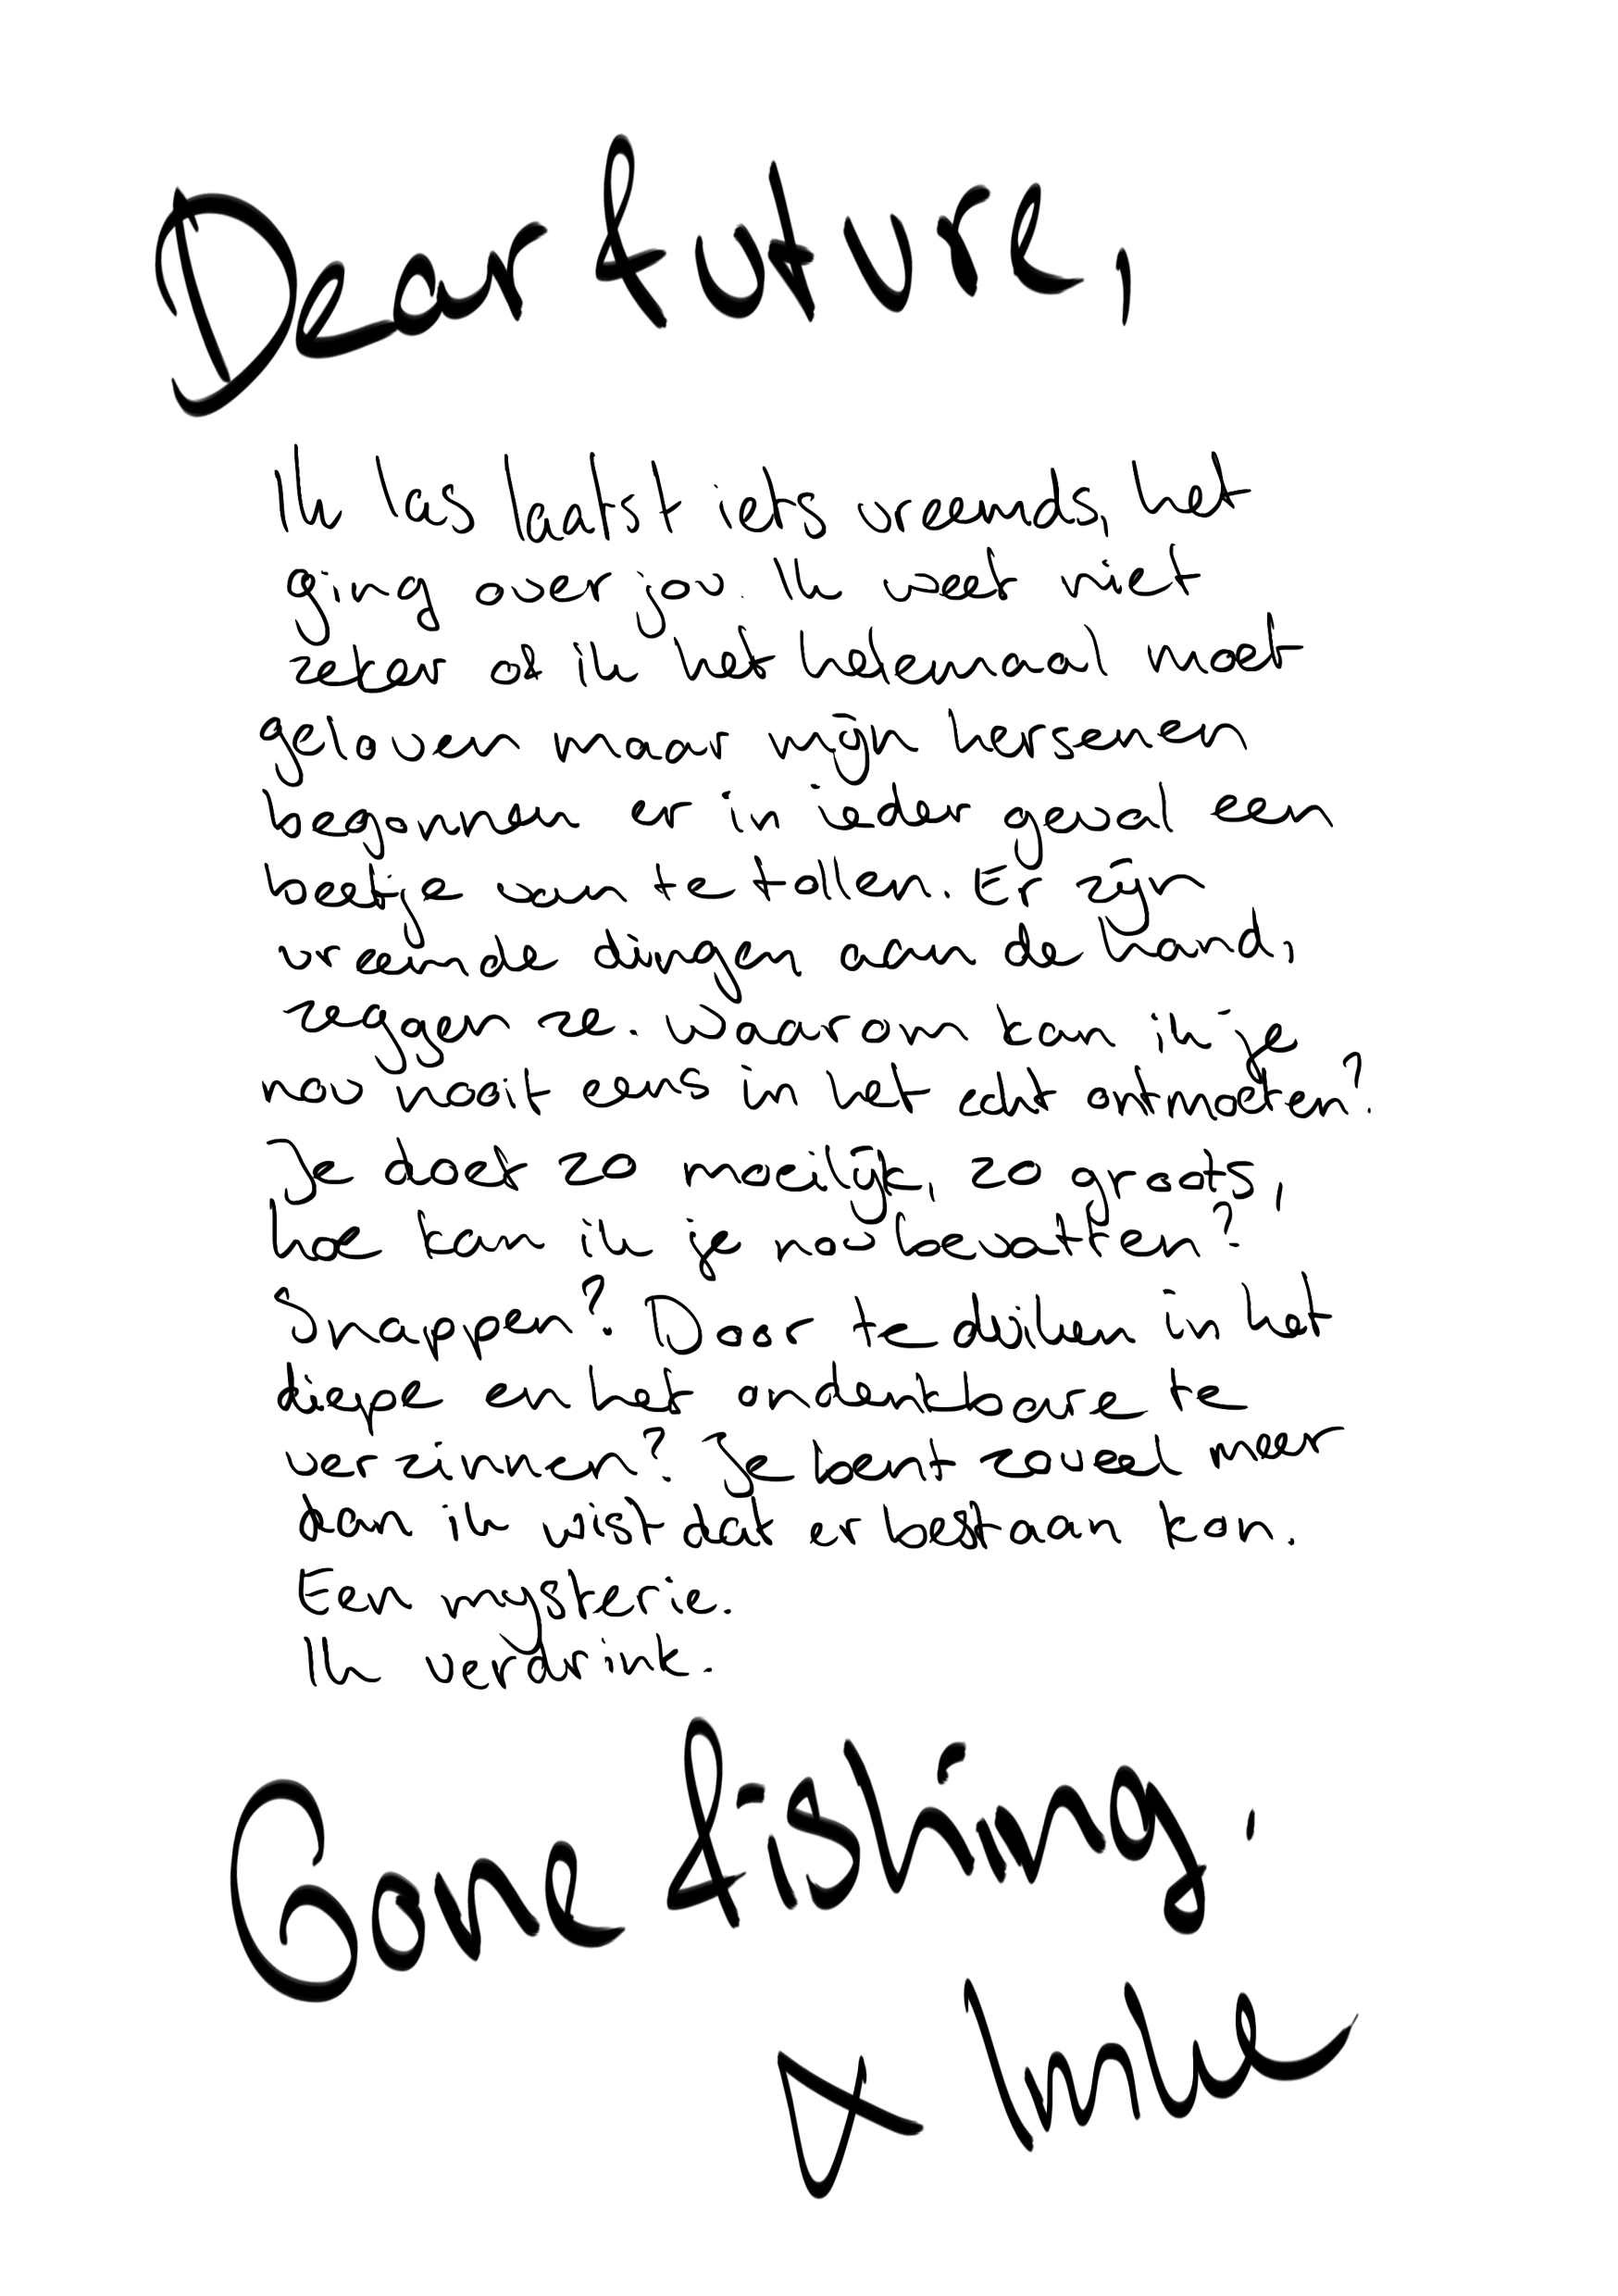 Dear future,
Ik las laatst iets vreemds, het
ging over jou. Ik weet niet
zeker of ik het helemaal moet
geloven maar mijn hersenen
begonnen er in ieder geval een
beetje van te tollen. Er zijn
vreemde dingen aan de hand,
zeggen ze. Waarom kan ik je
nou nooit eens in het echt ontmoeten?
Je doet zo moeilijk, zo groots,
hoe kan ik je nou bevatten?
Snappen? Door te duiken in het
diepe en het ondenkbare te
verzinnen? Je bent zoveel meer
dan ik wist dat er bestaan kon.
Een mysterie.
Ik verdrink.
Gone fishing.
X Imke